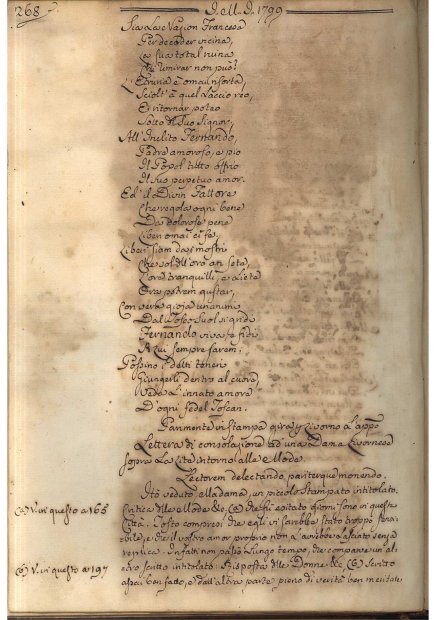 268
D. M. D. 1799
Sia la Nazion Francese
Per decader vicina,
La sua total ruina
Chi rimirar non può?
L'Etruria è omai risorta,
Sciolt' à quel laccio reo,
E ritornar poteo
Sotto il suo Signor,
All' Inclito Fernando,
Padre amoroso, e pio
Il Popol tutto offrio
Il suo perpetuo amor.
Ed il Divin Fattore
Che regola ogni bene
Da dolorose pene
Liberi omai ci fe,
Liberi siam da i mostri
Che sol dell'oro an seta,
L'ore tranquille, e liete
Ora potrem gustar,
Con vera gioja unanimi
Dal Tosco Suol si grida
Fernando viva, e fidi
A lui sempre sarem:
Possino i detti teneri
Giungerli dentro al cuore,
Veda l'innato amore
D'ogni fedel Toscan.
Parimente in stampa gira per Livorno l'appo
Lettera di consolazione ad una Dama Livornese
sopra la Lite intorno alle Mode.
Lectorem delectando, pariterque monendo.
Hò veduto Madama, un piccolo Stampato intitolato
Critica delle Mode &c. (a) che fù esitato giorni sono in questa
Città. Tosto compresi che egli vi sarebbe stato troppo
e che il vostro amor proprio non l'avrebbe lasciato senza
replica. Infatti non passò lungo tempo, che comparve un al
tro scritto intitolato: Risposta delle Donne &c. (b) Scritto
assai ben fado, e dall'altra parte pieno di verità ben meritate
(a) V. in questo a 165
(b) V. in questo a 197